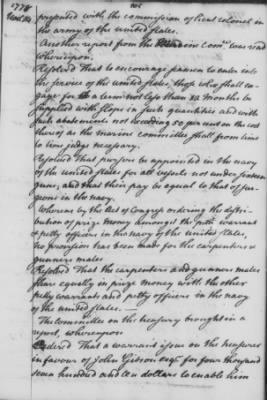 1778
presented with the commission of lieut colonel in
the army of the united states.
Another report from the Marine comee. was read
Whereupon
Resolved That to encourage seamen to enter into
the service of the united states, those who shall en-
gage for a term not less than 12 months be
supplied with slops in such quantities and with
such abatements not exceeding 50 per cent on the cost
thereof as the marine committee shall from time
to time judge necessary.
Resolved That pursers be appointed in the navy
of the united states for all vessels not under sixteen
guns, and that their pay be equal to that of sur-
geons in the navy.
Whereas by the Act of Congress ordering the distri-
bution of prize money amongst the petty warrant
& petty officers in the navy of the United States,
no provision has been made for the carpenters &
gunners mates
Resolved That the carpenters and gunners mates
share equally in prize money with the other
petty warrants and petty officers in the navy
of the united states. —
The Committee on the treasury brought in a
report, whereupon
Ordered That a warrant issue on the treasurer
in favour of John Gibson esqr. for four thousand
seven hundred and ten dollars to enable him